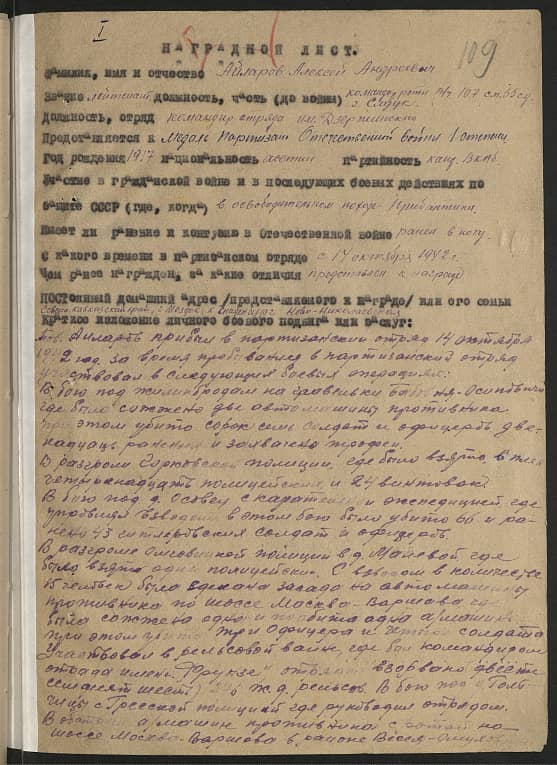 I
109
НАГРАДНОЙ ЛИСТ.
Фамилия, имя и отчество Айларов Алексей Андреевич
Звание лейтенант должность, часть (до войны) роты 107
Должность, отряд командир отряда им. Дзержинского
Представляется к Медаль Партизан Отечественной войны I степени
Год рождения 1917 национальность осетин партийность канд. ВКПб
Участие в гражданской войне и в последующих боевых действиях по
защите СССР (где, когда) в освободительном походе Прибалтики
Имеет ли ранение и контузию в Отечественной войне ранен в ногу
С какого времени в партизанском отряде с 14 октября 1942 г.
Чем ранее награжден, за какие отличия представлен к награде
ПОСТОЯННЫЙ домашний адрес /представляемого к награде/ или его семьи
г. Моздок Ново-Николаевская
Краткое изложение личного боевого подвига или заслуг:
Тов. Айларов прибыл в партизанский отряд 14 октября
1942 год, за время пребывания в партизанский отряд
участвовал в следующия боевых операциях:
В бою под на гравейки Осиповичи
где было сожжено две автомашины противника
при этом убито сорок семь солдат и офицеров две-
надцать ранения и захвачено трофеи.
В разгроме полиции, где было взято в плен
четырнадцать полицейских и 24 винтовок
В бою под д. Осовец с карательной экспедицией где
взводом в этом бою было убито 60 и ра-
нено 43 гитлеровския солдат и офицеров.
В разгроме полиции в д. Маневой где
было взято один полицейский. С взводом в количестве
15 человек была зделана засада на автомашины
противника по шоссе Москва-Варшава где
была сожжена одна и подбита одна а/машина
при этом убито три офицера и солдата
Участвовал в рельсовой войне, где был командиром
отряда имени "Фрунзе" взорвано двести
семдесят шесть ж.д. рельсов. В бою под
с Гресской полицией где руководил отрядом.
В а/машин противника с ротой на
шоссе Москва-Варшава в районе